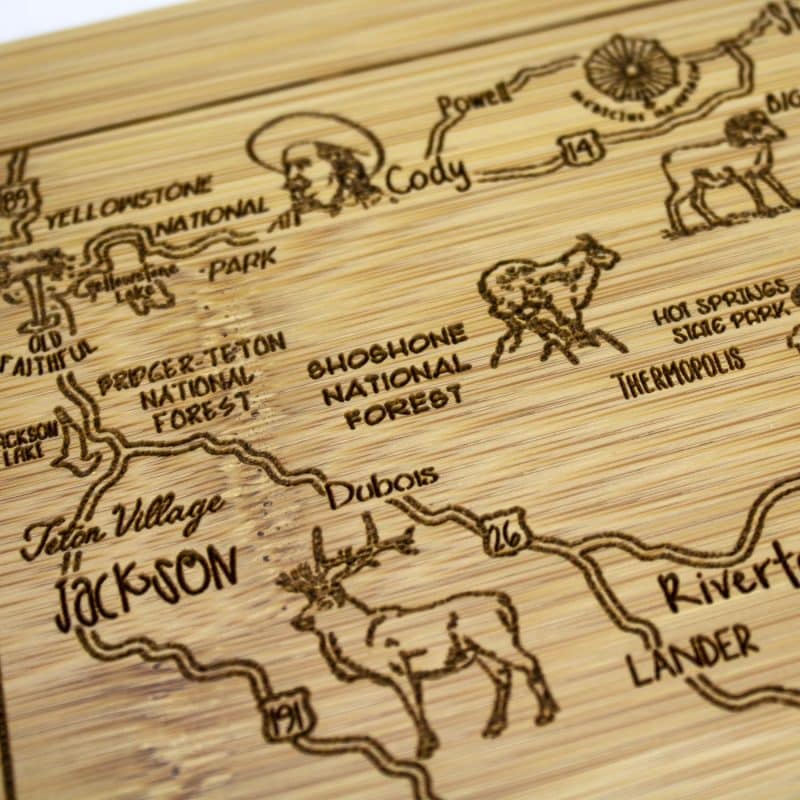 Powell
Cody
14
89
YELLOWSTONE
NATIONAL
PARK
Yellowstone
Lake
OLD
FAITHFUL
BRIDGER-TETON
NATIONAL
FOREST
SHOSHONE
NATIONAL
FOREST
HOT SPRINGS
STATE PARK
THERMOPOLIS
LAKE
Dubois
26
Teton Village
JACKSON
LANDER
191